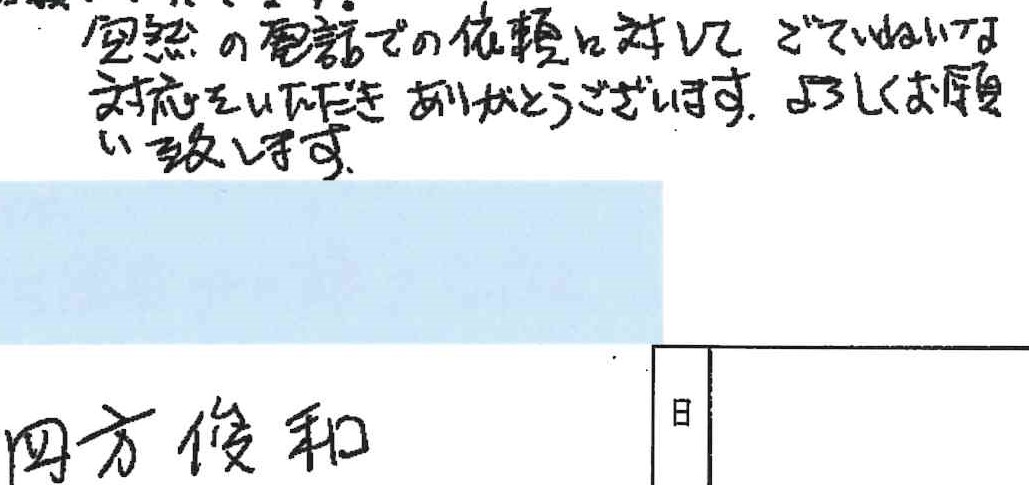 突然の電話での依頼に対して ごていねいな
対応をいただき ありがとうございます. よろしくお願
い致します.
日
四方 俊和